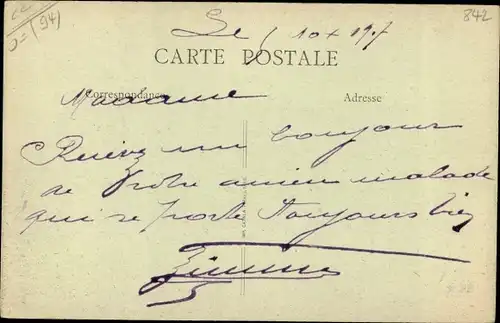 (94)
842
Le 10 + 1917
CARTE POSTALE
Correspondance
Adresse
Madame
Recevez un bonjour
de Votre ancien malade
qui se porte toujours bien